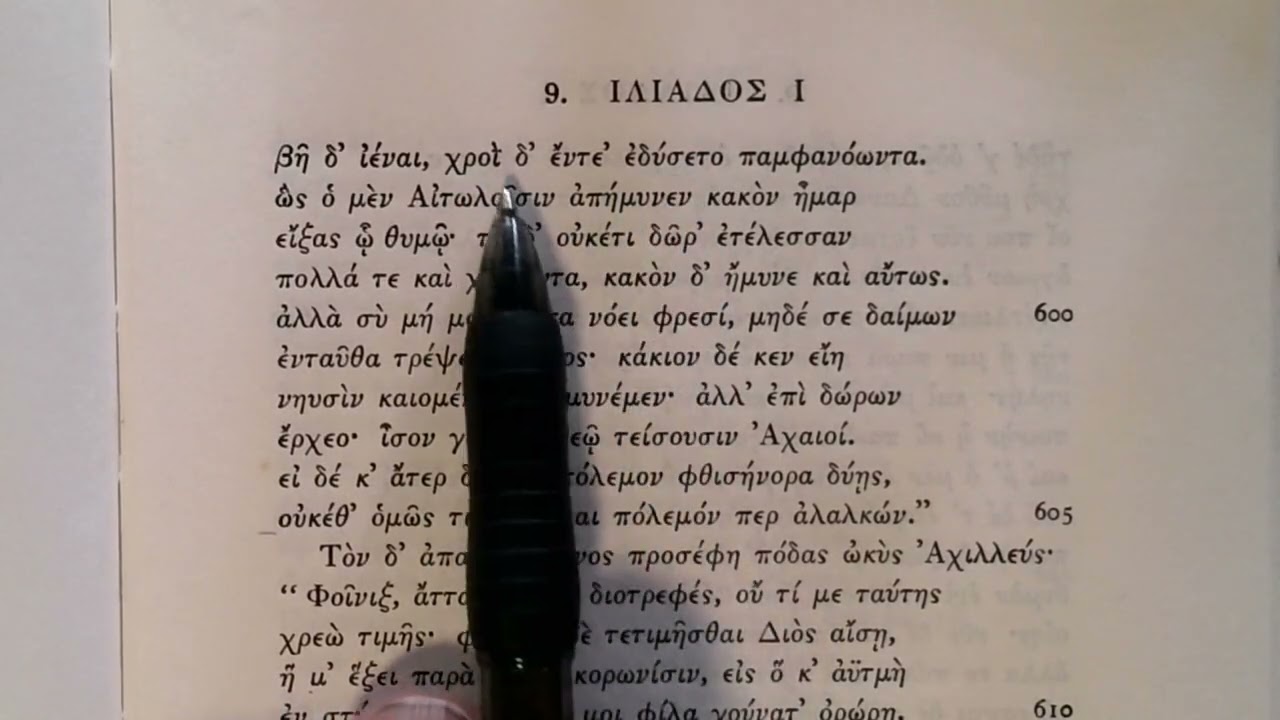 9. ΙΛΙΑΔΟΣ Ι
βῆ δ’ ἰέναι, χροῒ δ’ ἔντε’ ἐδύσετο παμφανόωντα.
ὣς ὁ μὲν Αἰτωλοῖσιν ἀπήμυνεν κακὸν ἦμαρ
εἴξας ᾧ θυμῷ· οὐκέτι δῶρ’ ἐτέλεσσαν
πολλά τε καὶ κακὸν δ’ ἤμυνε καὶ αὔτως.
ἀλλὰ σὺ μή νόει φρεσί, μηδέ σε δαίμων 600
ἐνταῦθα κάκιον δέ κεν εἴη
νηυσὶν ἀλλ’ ἐπὶ δώρων
ἔρχεο· ἶσον τείσουσιν Ἀχαιοί.
εἰ δέ κ’ ἄτερ φθισήνορα δύῃς,
οὐκέθ’ ὁμῶς πόλεμόν περ ἀλαλκών.” 605
Τὸν δ’ προσέφη πόδας ὠκὺς Ἀχιλλεύς·
“ Φοῖνιξ, διοτρεφές, οὔ τί με ταύτης
χρεὼ τιμῆς· τετιμῆσθαι Διὸς αἴσῃ,
ἥ μ’ ἕξει παρὰ κορωνίσιν, εἰς ὅ κ’ ἀϋτμὴ
φίλα γούνατ’ ὀρώρῃ. 610